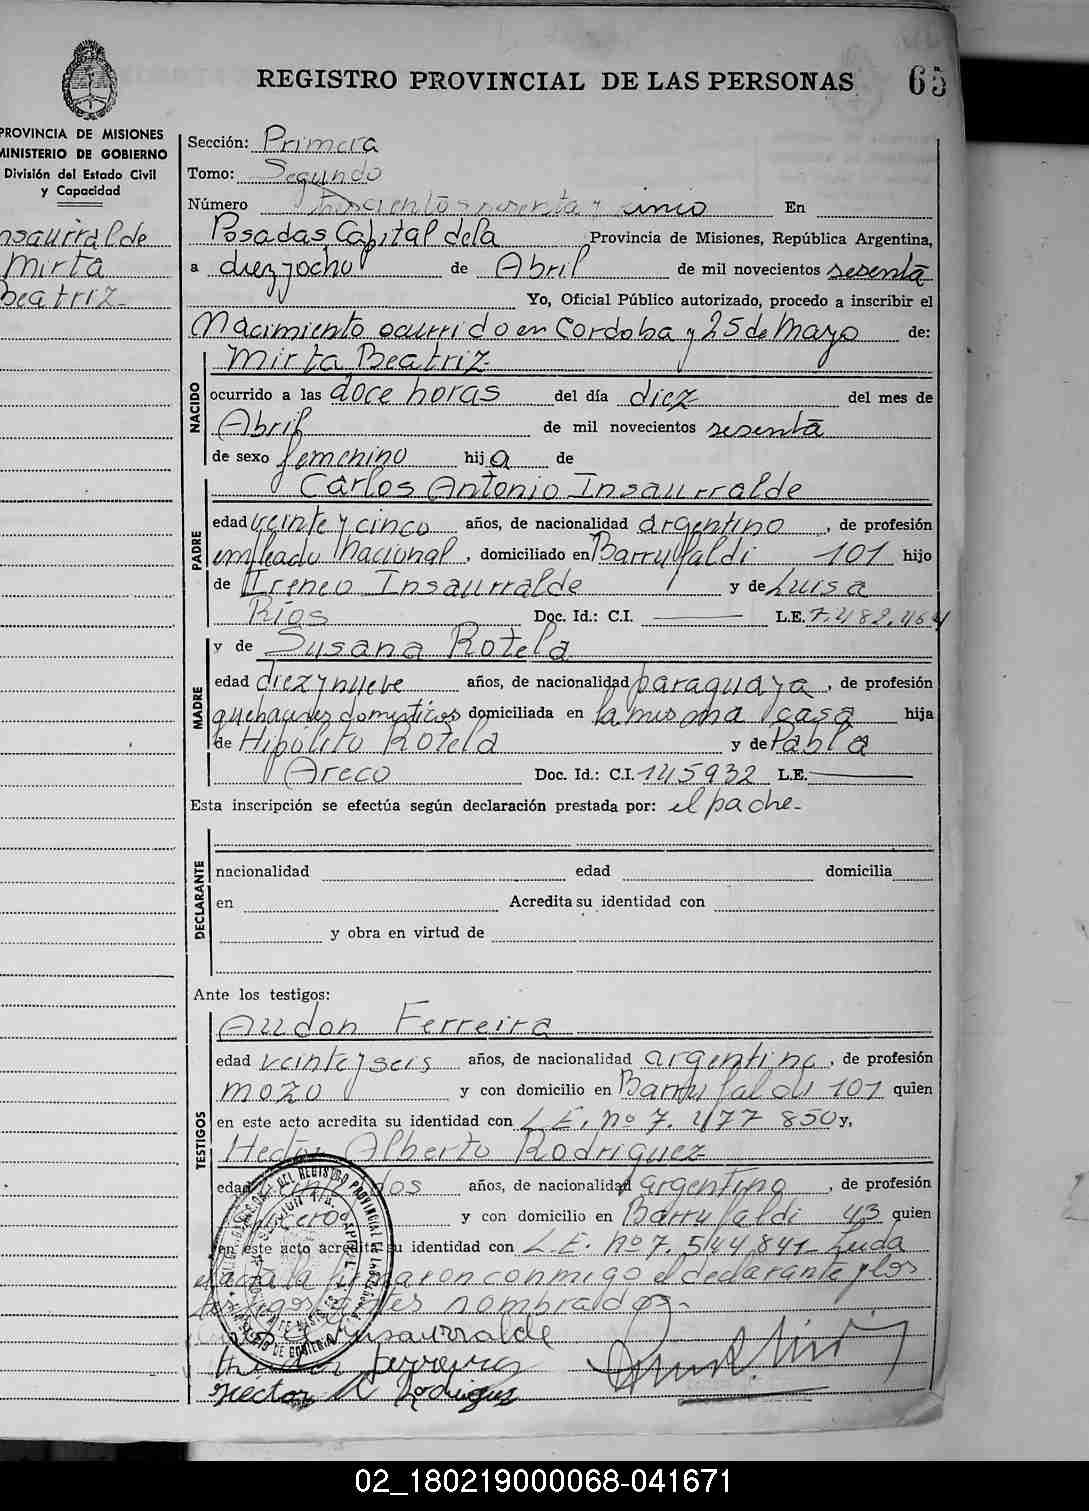 REGISTRO PROVINCIAL DE LAS PERSONAS 65
PROVINCIA DE MISIONES
MINISTERIO DE GOBIERNO
División del Estado Civil
y Capacidad
nsaurralde
Mirta
Beatriz
Sección: Primera
Tomo: Segundo
Número trescientos sesenta y cinco En
Posadas Capital de la Provincia de Misiones, República Argentina,
a diez y ocho de Abril de mil novecientos sesenta
Yo, Oficial Público autorizado, procedo a inscribir el
Nacimiento ocurrido en Cordoba y 25 de Mayo de:
NACIDO
Mirta Beatriz
ocurrido a las doce horas del día diez del mes de
Abril de mil novecientos sesenta
de sexo femenino hija de
PADRE
Carlos Antonio Insaurralde
edad veinte y cinco años, de nacionalidad argentino, de profesión
empleado nacional, domiciliado en Barrufaldi 101 hijo
de Ireneo Insaurralde y de Luisa
Ríos Doc. Id.: C.I. L.E. 7.482.464
MADRE
y de Susana Rotela
edad diez y nueve años, de nacionalidad paraguaya, de profesión
quehaceres domesticos domiciliada en la misma casa hija
de Hipólito Rotela y de Pabla
Areco Doc. Id.: C.I. 145932 L.E.
Esta inscripción se efectúa según declaración prestada por: el padre-
DECLARANTE
nacionalidad edad domicilia
en Acredita su identidad con
y obra en virtud de
Ante los testigos:
TESTIGOS
Auzdon Ferreira
edad veinte y seis años, de nacionalidad argentina, de profesión
mozo y con domicilio en Barrufaldi 101 quien
en este acto acredita su identidad con L.E. nº 7.477 850 y,
Hector Alberto Rodriguez
edad dos años, de nacionalidad argentino, de profesión
y con domicilio en Barrufaldi 43 quien
en este acto acredita su identidad con L.E. nº 7.544.841- Leida
el acta la firmaron conmigo el declarante y los
testigos antes nombrados.-
Insaurralde
Ferreira
Hector A Rodriguez
02_180219000068-041671